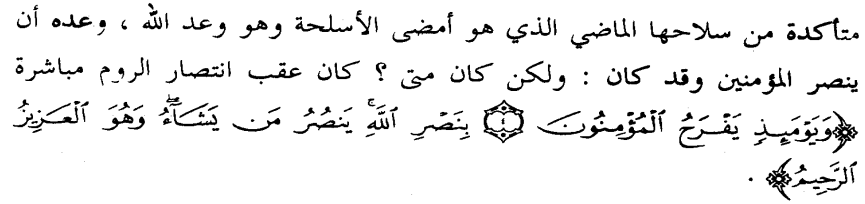 متأكدة من سلاحها الماضي الذي هو أمضى الأسلحة وهو وعد الله ، وعده أن
ينصر المؤمنين وقد كان : ولكن كان متى ؟ كان عقب انتصار الروم مباشرة
﴿وَيَوْمَئِذٍ يَفْرَحُ ٱلْمُؤْمِنُونَ ۝٤ بِنَصْرِ ٱللَّهِۚ يَنصُرُ مَن يَشَآءُۖ وَهُوَ ٱلْعَزِيزُ
ٱلرَّحِيمُ﴾ .